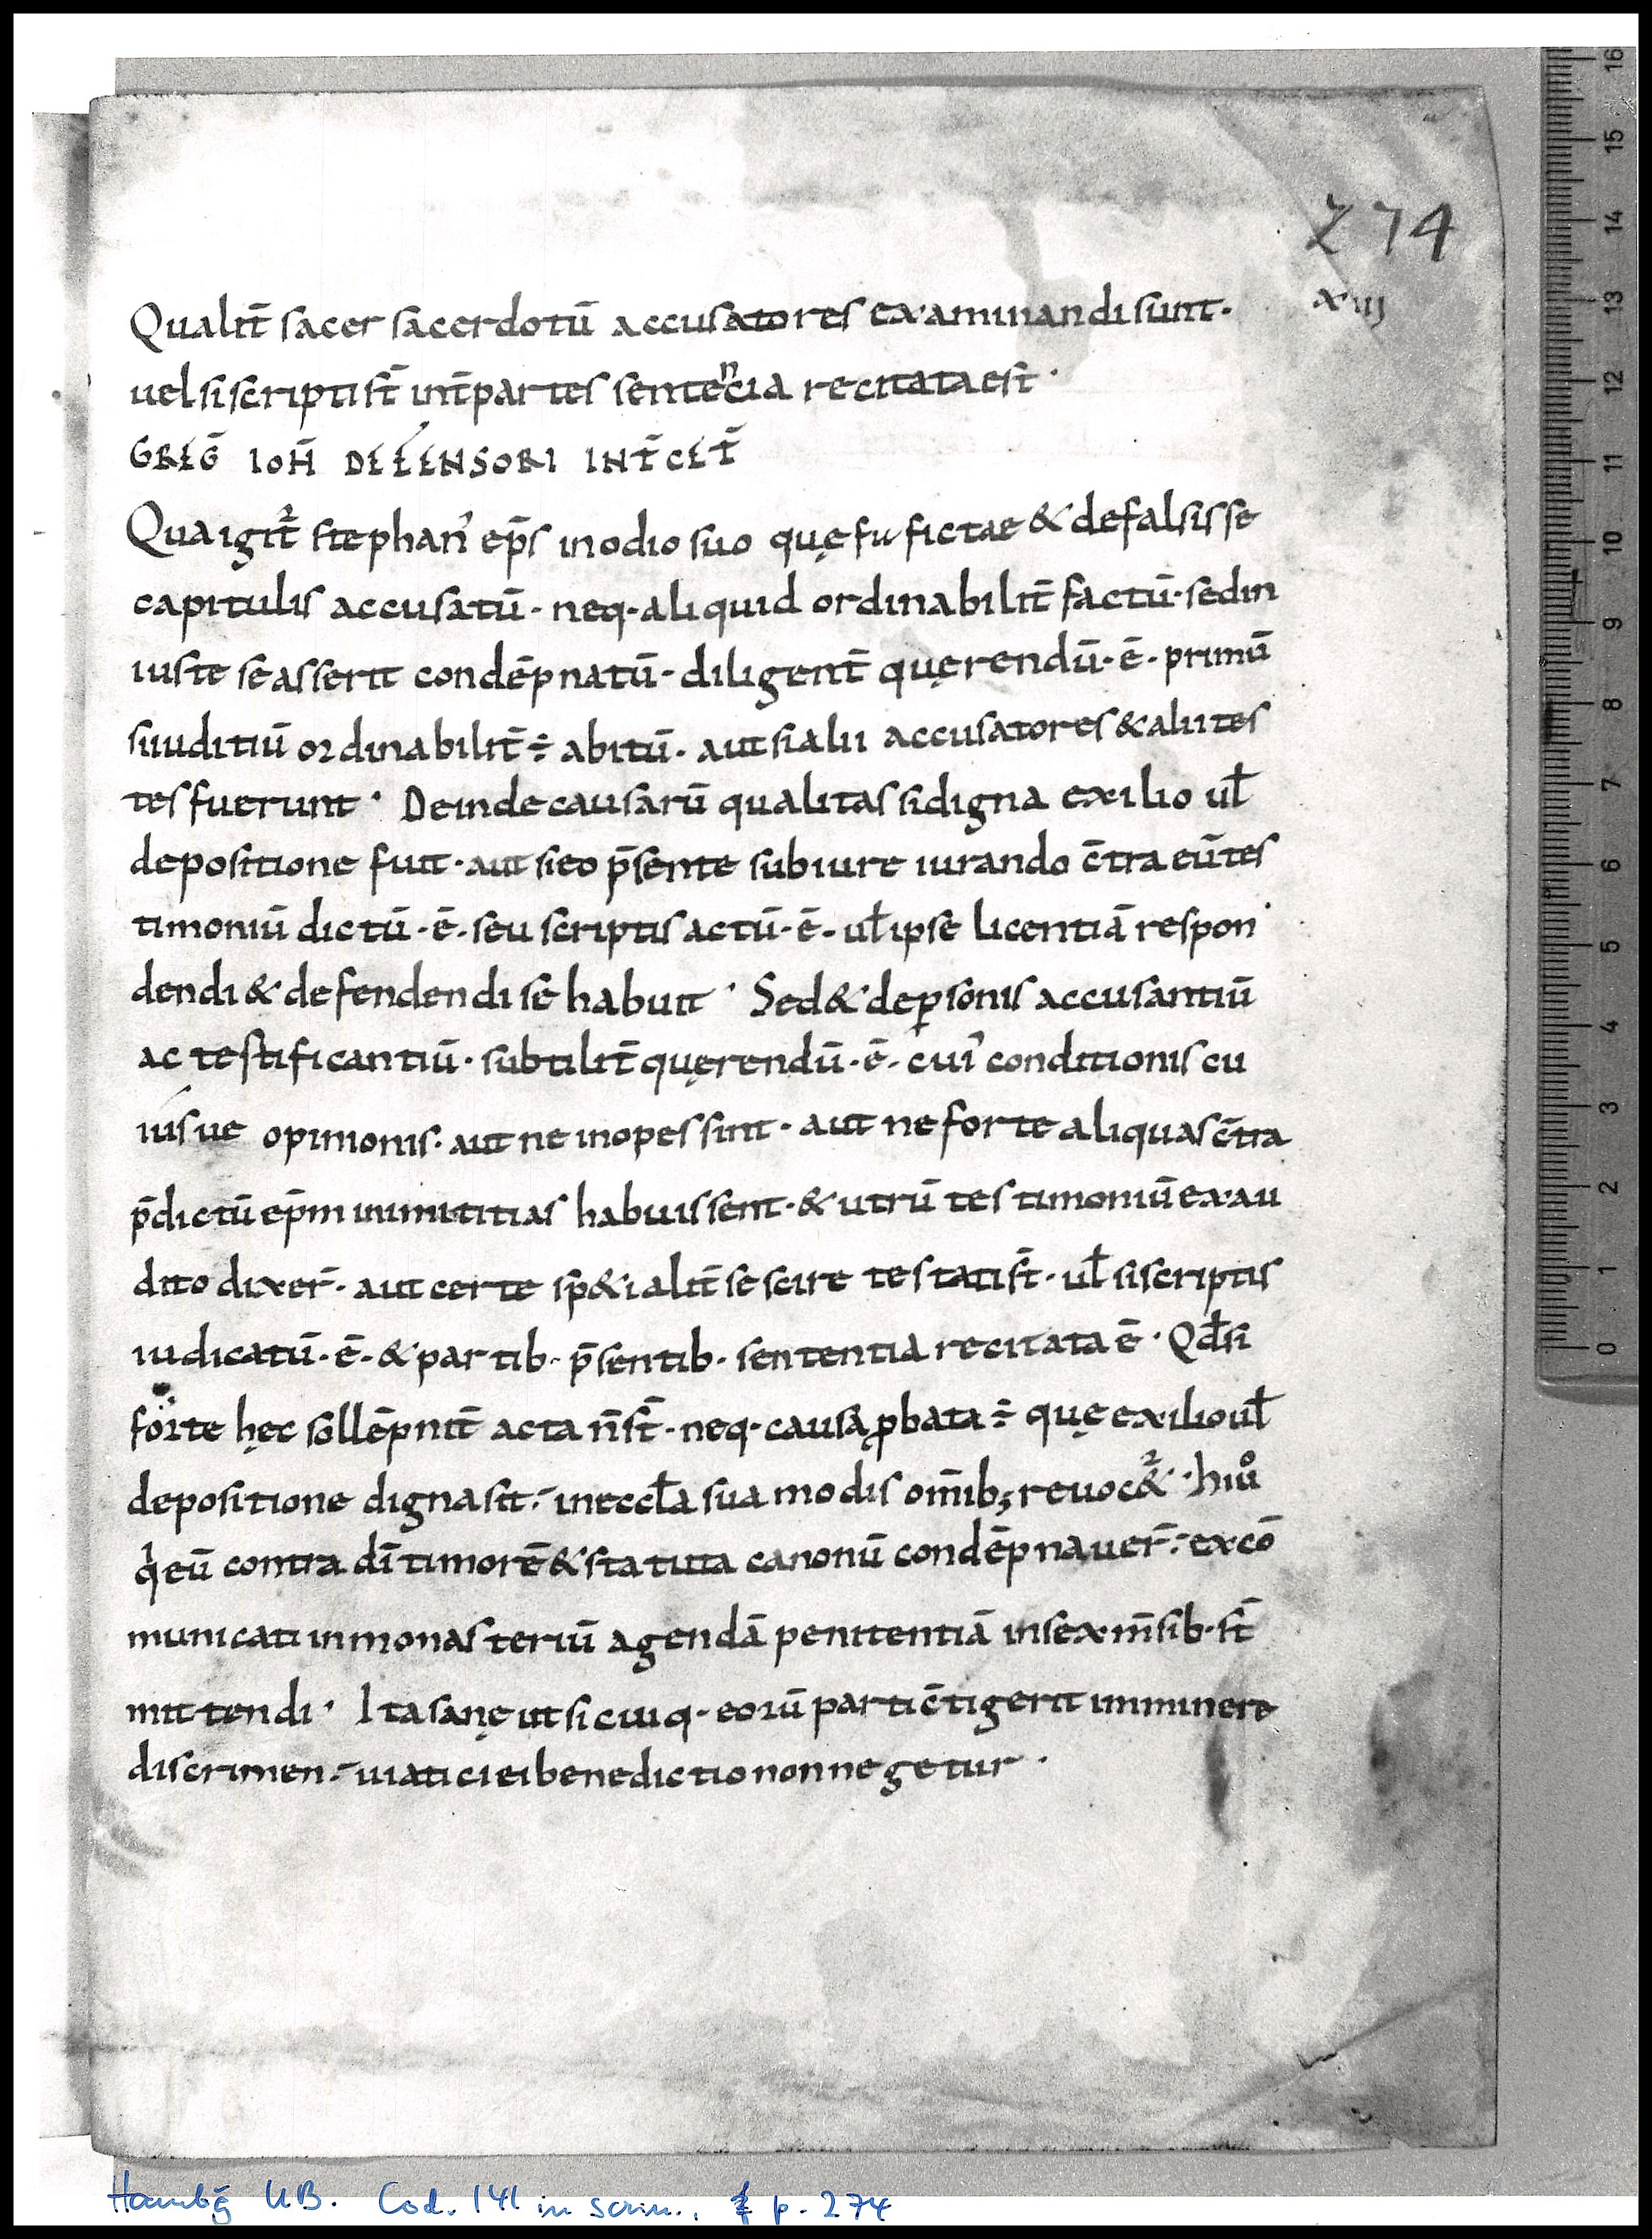 274
Qualit̄ sacer sacerdotū accusatores examinandi sunt· xiij
uel si scripti st̄ int̄ partes sentencia recitata est·
GREḠ IOH̄ DEFENSORI INT̄ CET̄
Qua igit̄ stephan' ep̄s in odio suo quę fu fictae & de falsis se
capitulis accusatū· neq· aliquid ordinabilit̄ factū· sed in
iuste se asserit condēpnatū· diligent̄ quęrendū· ē· primū
si iuditiū ordinabilit̄ ÷ abitū· aut si alii accusatores & alii tes
tes fuerunt· Deinde causarū qualitas si digna exilio ul̄
depositione fuit· aut si eo p̄sente sub iure iurando c̄tra eū tes
timoniū dictū· ē· seu scriptis actū· ē· ul̄ ipse licentiā respon
dendi & defendendi se habuit· Sed & de ꝑsonis accusantiū
ac testificantiū· subtilit̄ quęrendū· ē· cui' conditionis cu
iusue opinionis· aut ne inopes sint· aut ne forte aliquas c̄tra
p̄dictū ep̄m inimititias habuissent· & utrū testimoniū ex au
dito dixer̄· aut certe sp&ialit̄ se scire testati st̄· ul̄ si scriptis
iudicatū· ē· & partib· p̄sentib· sententia recitata ē· Qd̄ si
forte hęc sollēpnit̄ acta n̄ st̄· neq· causa ꝓbata ÷ quę exilio ul̄
depositione digna sit· in eccl̄a sua modis om̄ib; reuoc&ᷣ· hi uº
qi eū contra dī timorē & statuta canonū condēpnauer̄· excō
municati in monasteriū agendā penitentiā in sex m̄sib· st̄
mittendi· Ita sanę ut si cuiq· eorū parti c̄tigerit imminere
discrimen· uiatici ei benedictio non negetur·
Hambg̅ UB. Cod. 141 in scrin., p. 274
16
15
14
13
12
11
10
9
8
7
6
5
4
3
2
1
0